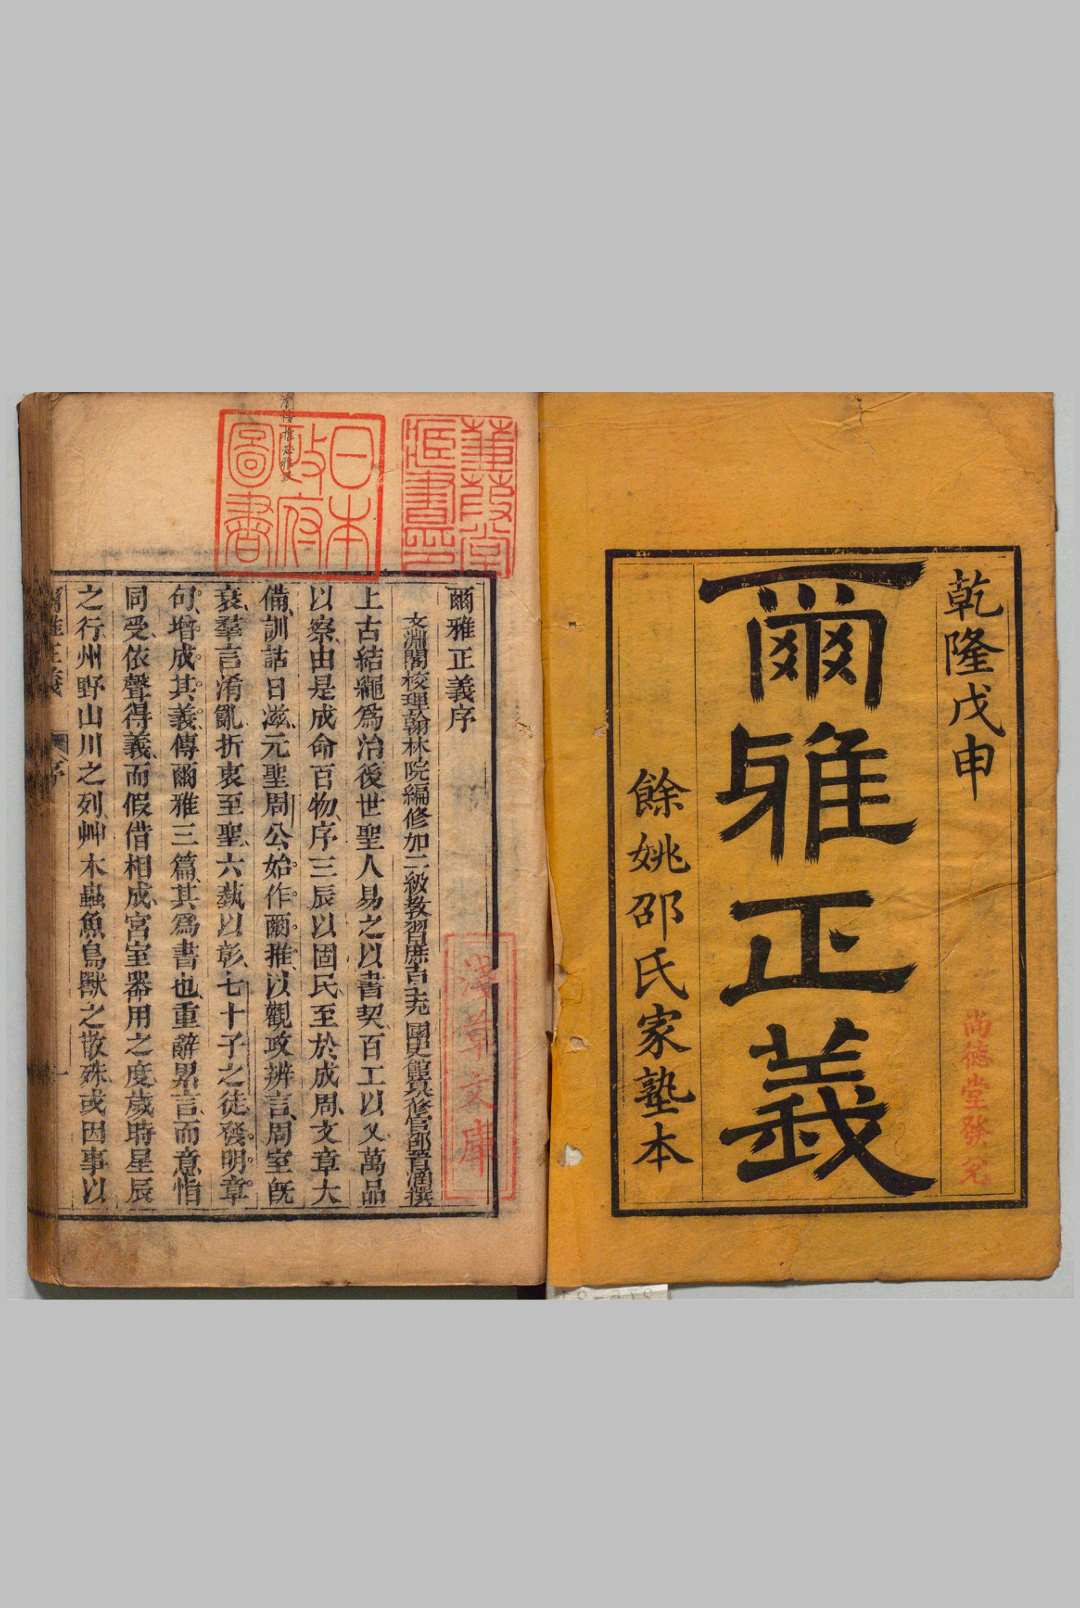 乾隆戊申
爾雅正義
餘姚邵氏家塾本
尚德堂發兌
蒹葭堂藏書印
日本政府圖書
淺草文庫
爾雅正義序
文淵閣校理翰林院編修加二級教習庶吉士充 國史館纂修官邵晉涵撰
上古結繩爲治後世聖人易之以書契百工以乂萬品
以察由是成命百物序三辰以固民至於成周文章大
備訓詁日滋元聖周公始作爾雅以觀政辨言周室旣
衰羣言淆亂折衷至聖六蓺以彰七十子之徒發明章
句增成其義傳爾雅三篇其爲書也重辭累言而意恉
同受依聲得義而假借相成宮室器用之度歲時星辰
之行州野山川之列艸木蟲魚鳥獸之散殊或因事以
爾雅正義 序 一